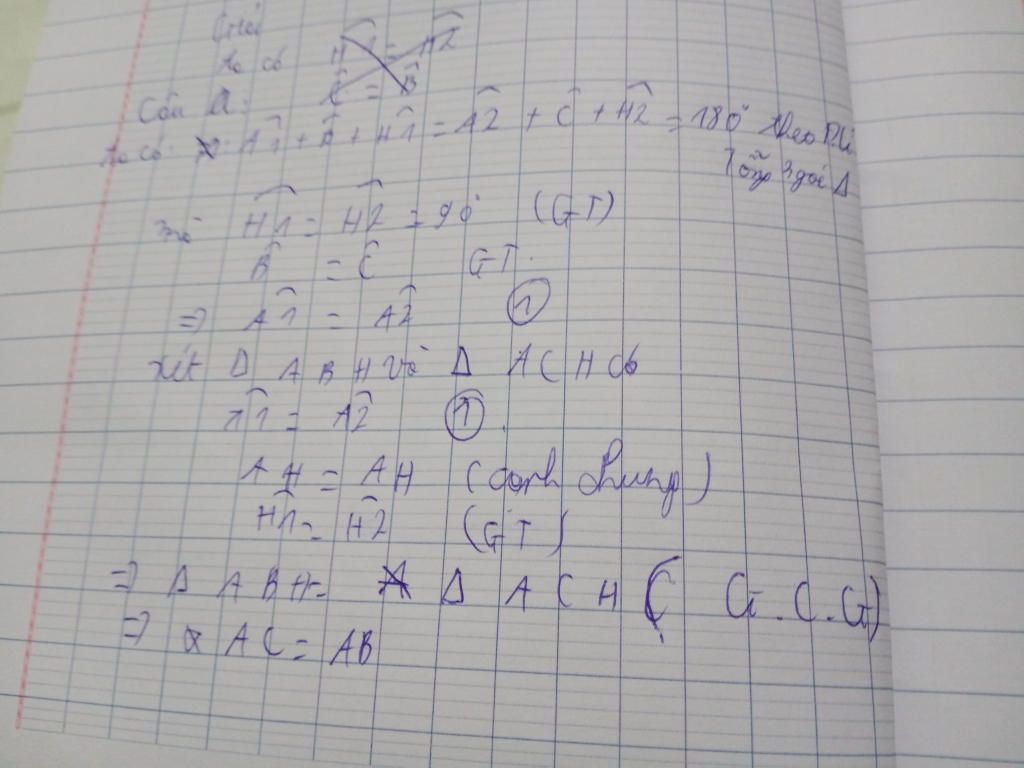 Ta có H1 = H2
C = B
Câu a:
Ta có: A1 + B + H1 = A2 + C + H2 = 180° theo ĐLí
Tổng 3 góc Δ
mà H1 = H2 = 90° (GT)
B = C GT.
⇒ A1 = A2 ①
xét Δ ABH và Δ ACH có
A1 = A2 ①.
AH = AH (cạnh chung)
H1 = H2 (GT)
⇒ Δ ABH = Δ ACH (G.C.G)
⇒ AC = AB